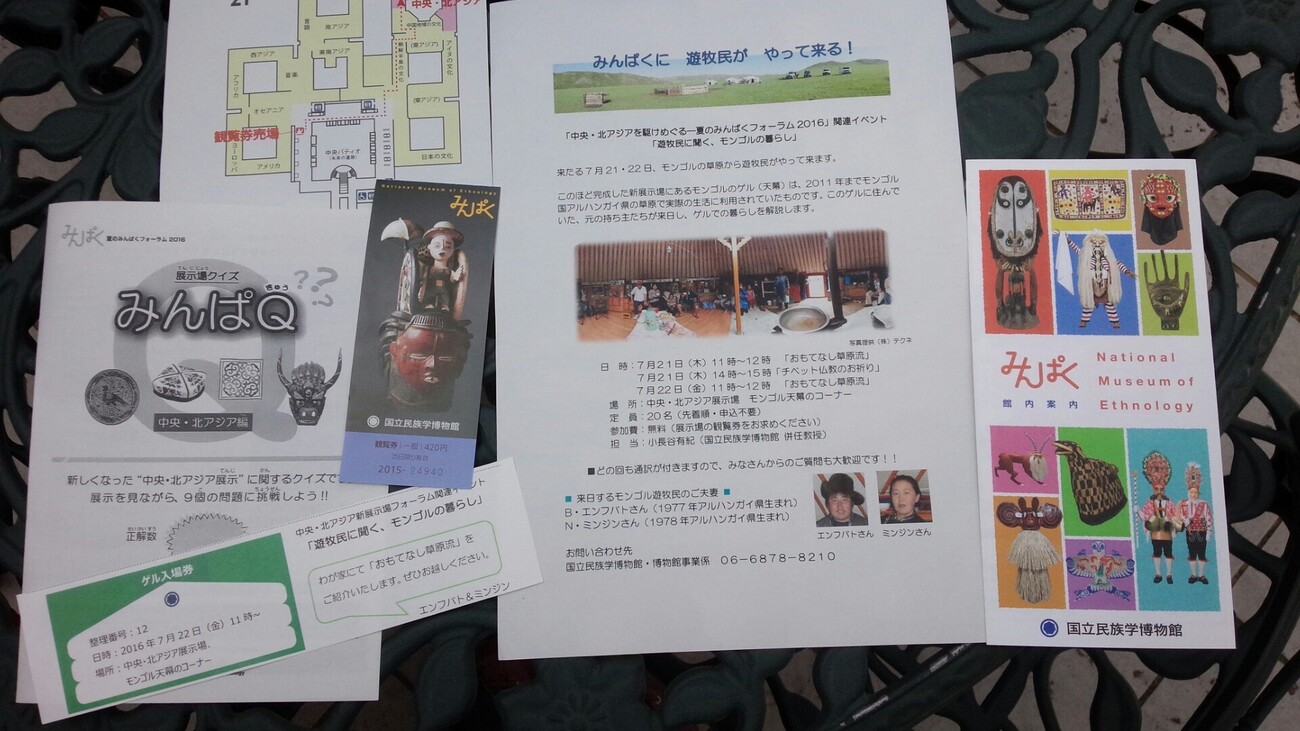 中央・北アジア
言語
南アジア
中国地域の文化
西アジア
東南アジア
(東アジア)
アイヌの文化
朝鮮半島の文化
音楽
アフリカ
オセアニア
(東アジア)
観覧券売場
ヨーロッパ
アメリカ
中央パティオ
(未来の遺跡)
日本の文化
みんぱく 夏のみんぱくフォーラム 2016
てんじじょう
展示場クイズ
???
きゅう
みんぱQ
中央・北アジア編
てんじ
新しくなった “中央・北アジア展示” に関するクイズで
てんじ こ ちょうせん
展示を見ながら、9個の問題に挑戦しよう!!
せいかいすう
正解数
National Museum of Ethnology
みんぱく
国立民族学博物館
観覧券|一般|420円
当日限り有効
2015- 24940
ゲル入場券
整理番号:12
日時:2016年7月22日(金)11時~
場所:中央・北アジア展示場、
モンゴル天幕のコーナー
中央・北アジア新展示場フォーラム関連イベント
「遊牧民に聞く、モンゴルの暮らし」
わが家にて「おもてなし草原流」を
ご紹介いたします。ぜひお越しください。
エンフバト&ミンジン
みんぱくに 遊牧民が やって来る!
「中央・北アジアを駆けめぐる―夏のみんぱくフォーラム2016」関連イベント
「遊牧民に聞く、モンゴルの暮らし」
来たる7月21・22日、モンゴルの草原から遊牧民がやって来ます。
このほど完成した新展示場にあるモンゴルのゲル(天幕)は、2011年までモンゴル
国アルハンガイ県の草原で実際の生活に利用されていたものです。このゲルに住んで
いた、元の持ち主たちが来日し、ゲルでの暮らしを解説します。
写真提供(株)テクネ
日 時:7月21日(木)11時~12時 「おもてなし草原流」
7月21日(木)14時~15時「チベット仏教のお祈り」
7月22日(金)11時~12時 「おもてなし草原流」
場 所:中央・北アジア展示場 モンゴル天幕のコーナー
定 員:20名(先着順・申込不要)
参加費:無料(展示場の観覧券をお求めください)
担 当:小長谷有紀(国立民族学博物館 併任教授)
■どの回も通訳が付きますので、みなさんからのご質問も大歓迎です!!
■ 来日するモンゴル遊牧民のご夫妻 ■
B・エンフバトさん(1977年アルハンガイ県生まれ)
N・ミンジンさん(1978年アルハンガイ県生まれ)
エンフバトさん ミンジンさん
お問い合わせ先
国立民族学博物館・博物館事業係 06-6878-8210
みんぱく
館内案内
National
Museum of
Ethnology
国立民族学博物館